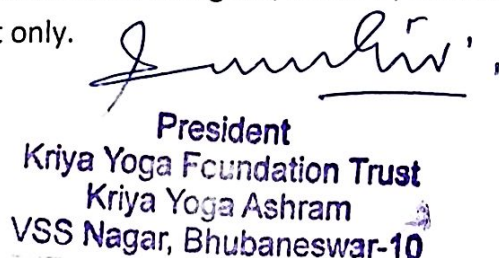 only.
President
Kriya Yoga Foundation Trust
Kriya Yoga Ashram
VSS Nagar, Bhubaneswar-10